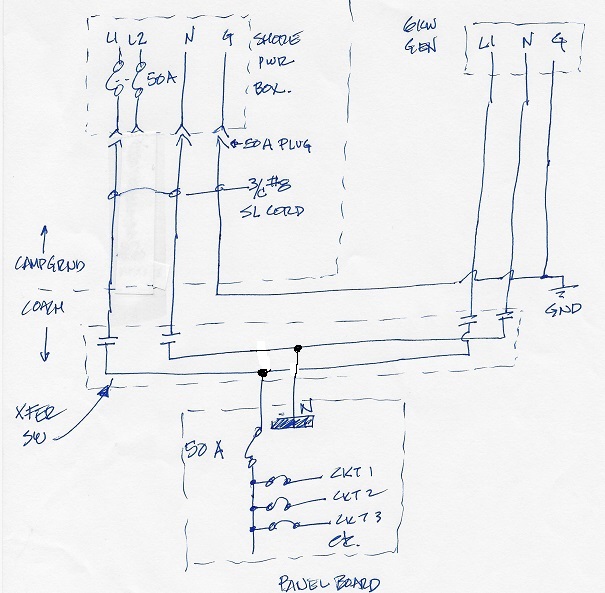 L1 L2 N G
50A
SHORE
PWR
BOX.
50A PLUG
3/C #8
SL CORD
6KW
GEN
L1 N G
CAMPGRND
COACH
GND
XFER
SW
N
50A
CKT 1
CKT 2
CKT 3
etc.
PANEL BOARD